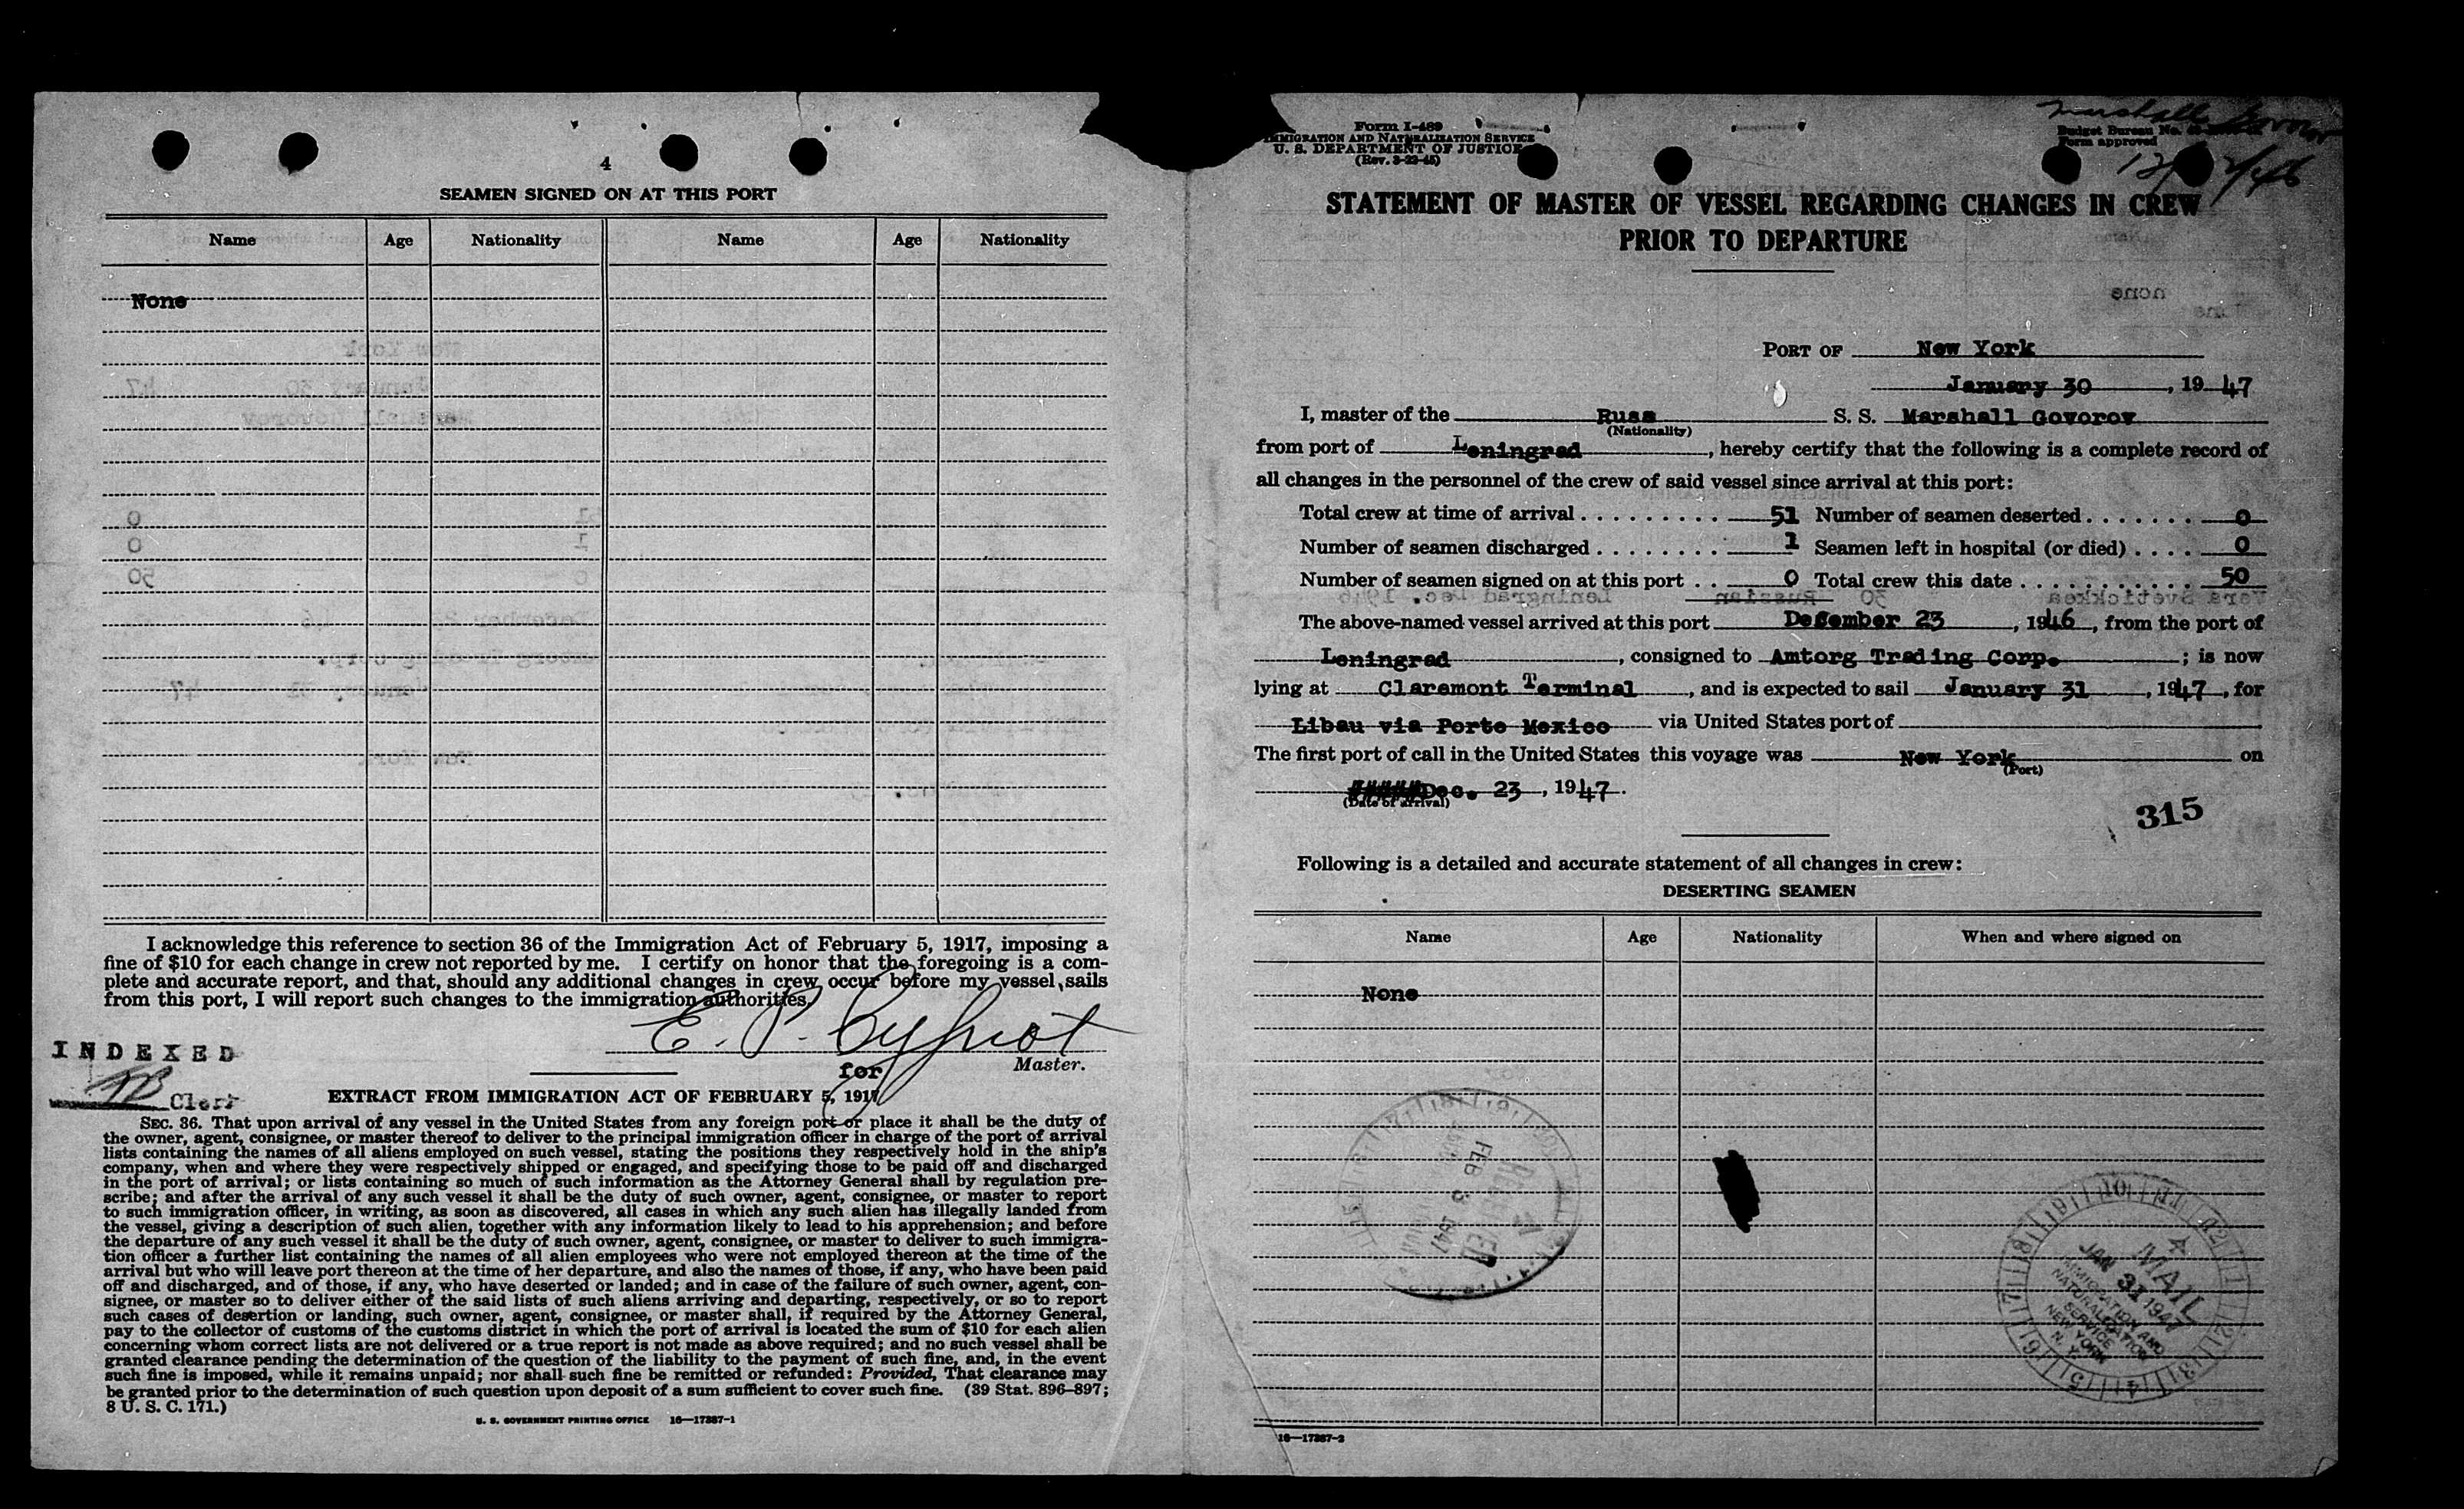 4
SEAMEN SIGNED ON AT THIS PORT
Name Age Nationality Name Age Nationality
None
I acknowledge this reference to section 36 of the Immigration Act of February 5, 1917, imposing a
fine of $10 for each change in crew not reported by me. I certify on honor that the foregoing is a com-
plete and accurate report, and that, should any additional changes in crew occur before my vessel sails
from this port, I will report such changes to the immigration authorities.
E. P.
for Master.
INDEXED
Clerk
EXTRACT FROM IMMIGRATION ACT OF FEBRUARY 5, 1917
SEC. 36. That upon arrival of any vessel in the United States from any foreign port or place it shall be the duty of
the owner, agent, consignee, or master thereof to deliver to the principal immigration officer in charge of the port of arrival
lists containing the names of all aliens employed on such vessel, stating the positions they respectively hold in the ship's
company, when and where they were respectively shipped or engaged, and specifying those to be paid off and discharged
in the port of arrival; or lists containing so much of such information as the Attorney General shall by regulation pre-
scribe; and after the arrival of any such vessel it shall be the duty of such owner, agent, consignee, or master to report
to such immigration officer, in writing, as soon as discovered, all cases in which any such alien has illegally landed from
the vessel, giving a description of such alien, together with any information likely to lead to his apprehension; and before
the departure of any such vessel it shall be the duty of such owner, agent, consignee, or master to deliver to such immigra-
tion officer a further list containing the names of all alien employees who were not employed thereon at the time of the
arrival but who will leave port thereon at the time of her departure, and also the names of those, if any, who have been paid
off and discharged, and of those, if any, who have deserted or landed; and in case of the failure of such owner, agent, con-
signee, or master so to deliver either of the said lists of such aliens arriving and departing, respectively, or so to report
such cases of desertion or landing, such owner, agent, consignee, or master shall, if required by the Attorney General,
pay to the collector of customs of the customs district in which the port of arrival is located the sum of $10 for each alien
concerning whom correct lists are not delivered or a true report is not made as above required; and no such vessel shall be
granted clearance pending the determination of the question of the liability to the payment of such fine, and, in the event
such fine is imposed, while it remains unpaid; nor shall such fine be remitted or refunded: Provided, That clearance may
be granted prior to the determination of such question upon deposit of a sum sufficient to cover such fine. (39 Stat. 896–897;
8 U. S. C. 171.)
U. S. GOVERNMENT PRINTING OFFICE 16—17387-1
Form I-489
IMMIGRATION AND NATURALIZATION SERVICE
U. S. DEPARTMENT OF JUSTICE
(Rev. 3-22-45)
Marshall Govorov
Budget Bureau No.
Form approved
STATEMENT OF MASTER OF VESSEL REGARDING CHANGES IN CREW
PRIOR TO DEPARTURE
PORT OF New York
January 30, 1947
I, master of the Russ S. S. Marshall Govorov
(Nationality)
from port of Leningrad, hereby certify that the following is a complete record of
all changes in the personnel of the crew of said vessel since arrival at this port:
Total crew at time of arrival 51 Number of seamen deserted 0
Number of seamen discharged 1 Seamen left in hospital (or died) 0
Number of seamen signed on at this port 0 Total crew this date 50
The above-named vessel arrived at this port December 23, 1946, from the port of
Leningrad, consigned to Amtorg Trading Corp.; is now
lying at Claremont Terminal, and is expected to sail January 31, 1947, for
Libau via Porto Mexico via United States port of
The first port of call in the United States this voyage was New York on
(Port)
Dec. 23, 1947.
(Date of arrival)
315
Following is a detailed and accurate statement of all changes in crew:
DESERTING SEAMEN
Name Age Nationality When and where signed on
None
RECEIVED
FEB 3 1947
MAIL
JAN 31 1947
IMMIGRATION AND
NATURALIZATION
SERVICE
NEW YORK
N. Y.
16—17387-2